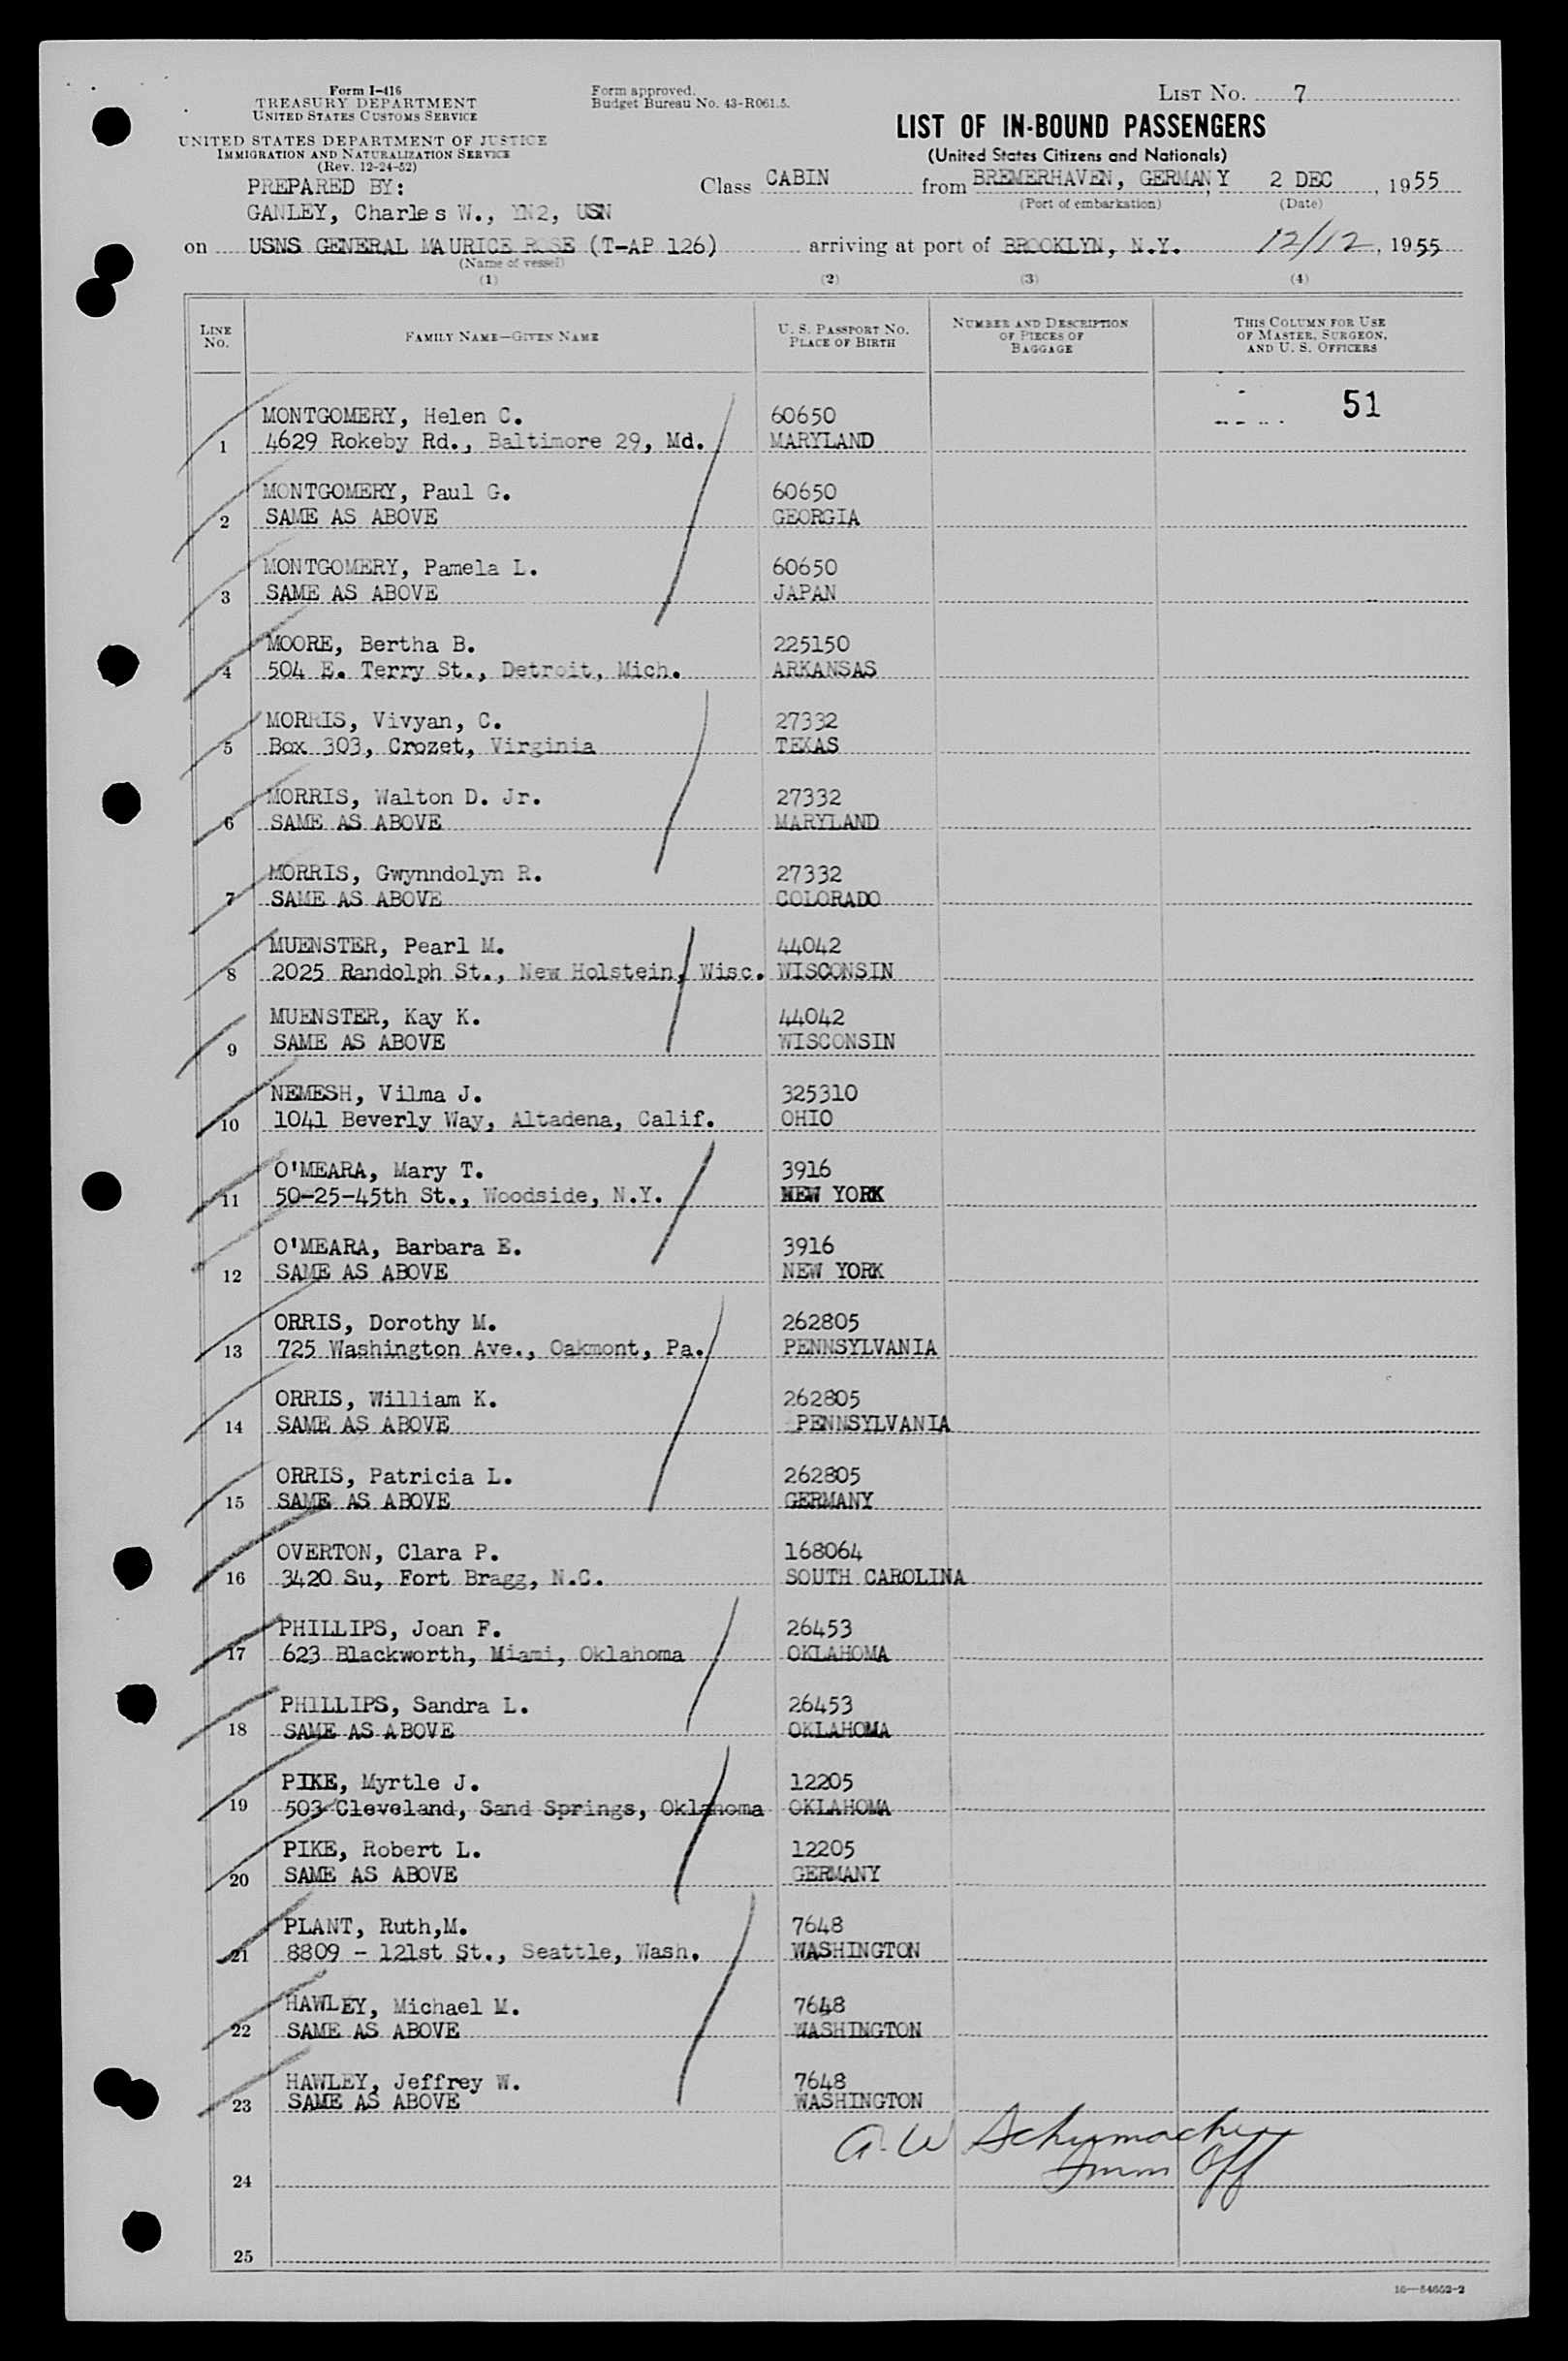 Form I-416
TREASURY DEPARTMENT
UNITED STATES CUSTOMS SERVICE
UNITED STATES DEPARTMENT OF JUSTICE
IMMIGRATION AND NATURALIZATION SERVICE
(Rev. 12-24-52)
Form approved.
Budget Bureau No. 43-R061.5.
LIST NO. 7
LIST OF IN-BOUND PASSENGERS
(United States Citizens and Nationals)
PREPARED BY:
GANLEY, Charles W., YN2, USN
Class CABIN from BREMERHAVEN, GERMANY 2 DEC, 1955
(Port of embarkation) (Date)
on USNS GENERAL MAURICE ROSE (T-AP 126) arriving at port of BROOKLYN, N.Y. 12/12, 1955
(Name of vessel)
(1) (2) (3) (4)
LINE NO. FAMILY NAME—GIVEN NAME U. S. PASSPORT NO. PLACE OF BIRTH NUMBER AND DESCRIPTION OF PIECES OF BAGGAGE THIS COLUMN FOR USE OF MASTER, SURGEON, AND U. S. OFFICERS
51
MONTGOMERY, Helen C. 60650
1 4629 Rokeby Rd., Baltimore 29, Md. MARYLAND
MONTGOMERY, Paul G. 60650
2 SAME AS ABOVE GEORGIA
MONTGOMERY, Pamela L. 60650
3 SAME AS ABOVE JAPAN
MOORE, Bertha B. 225150
4 504 E. Terry St., Detroit, Mich. ARKANSAS
MORRIS, Vivyan, C. 27332
5 Box 303, Crozet, Virginia TEXAS
MORRIS, Walton D. Jr. 27332
6 SAME AS ABOVE MARYLAND
MORRIS, Gwynndolyn R. 27332
7 SAME AS ABOVE COLORADO
MUENSTER, Pearl M. 44042
8 2025 Randolph St., New Holstein, Wisc. WISCONSIN
MUENSTER, Kay K. 44042
9 SAME AS ABOVE WISCONSIN
NEMESH, Vilma J. 325310
10 1041 Beverly Way, Altadena, Calif. OHIO
O'MEARA, Mary T. 3916
11 50-25-45th St., Woodside, N.Y. NEW YORK
O'MEARA, Barbara E. 3916
12 SAME AS ABOVE NEW YORK
ORRIS, Dorothy M. 262805
13 725 Washington Ave., Oakmont, Pa. PENNSYLVANIA
ORRIS, William K. 262805
14 SAME AS ABOVE PENNSYLVANIA
ORRIS, Patricia L. 262805
15 SAME AS ABOVE GERMANY
OVERTON, Clara P. 168064
16 3420 Su, Fort Bragg, N.C. SOUTH CAROLINA
PHILLIPS, Joan F. 26453
17 623 Blackworth, Miami, Oklahoma OKLAHOMA
PHILLIPS, Sandra L. 26453
18 SAME AS ABOVE OKLAHOMA
PIKE, Myrtle J. 12205
19 503 Cleveland, Sand Springs, Oklahoma OKLAHOMA
PIKE, Robert L. 12205
20 SAME AS ABOVE GERMANY
PLANT, Ruth,M. 7648
21 8809 - 121st St., Seattle, Wash. WASHINGTON
HAWLEY, Michael M. 7648
22 SAME AS ABOVE WASHINGTON
HAWLEY, Jeffrey W. 7648
23 SAME AS ABOVE WASHINGTON
A. W Schumacher
Imm Off
24
25
16—54662-2